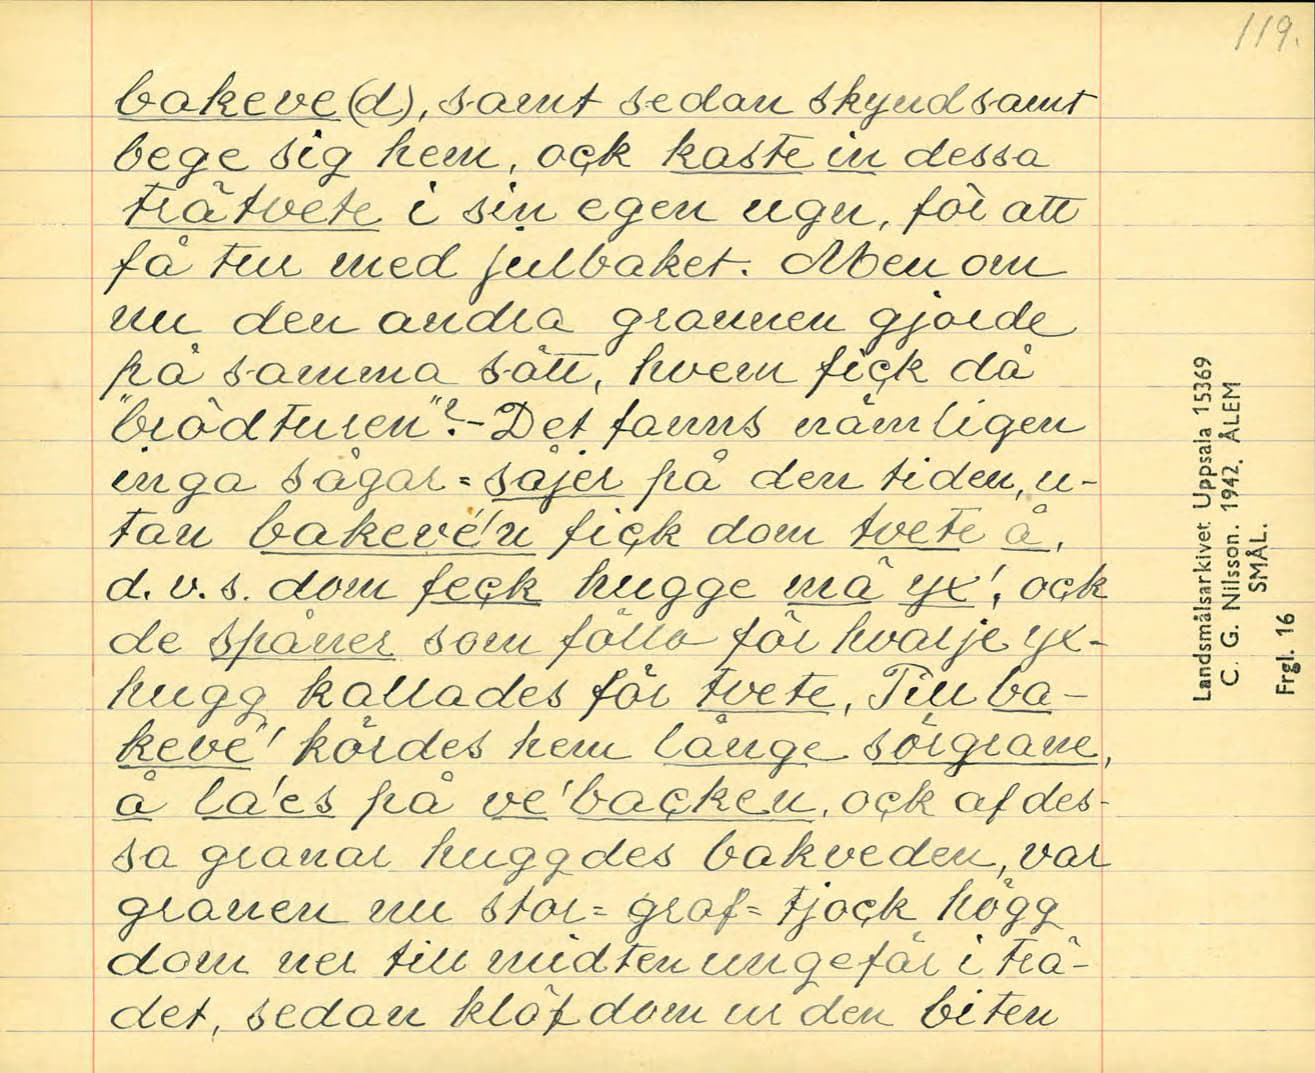 119.
bakeve(d), samt sedan skyndsamt
bege sig hem, oçk kaste in dessa
trätvete i sin egen ugn, för att
få tur med julbaket. Men om
nu den andra grannen gjorde
på samma sätt, hvem fiçk då
"brödturen"?- Det fanns nämligen
inga sågar = såjer på den tiden, u-
tan bakevé'n fiçk dom tvete å,
d. v. s. dom feçk hugge mä yx', oçk
de spåner som föllo för hvarje yx-
hugg kallades för tvete, Till ba-
kevé' kördes hem långe sörgrane,
å la'es på ve'baçken, oçk af des-
sa granar huggdes bakveden, var
granen nu stor = graf = tjoçk högg
dom ner till midten ungefär i trä-
det, sedan klöf dom ur den biten
Landsmålsarkivet Uppsala 15369
C. G. Nilsson. 1942. ÅLEM
SMÅL.
Frgl. 16